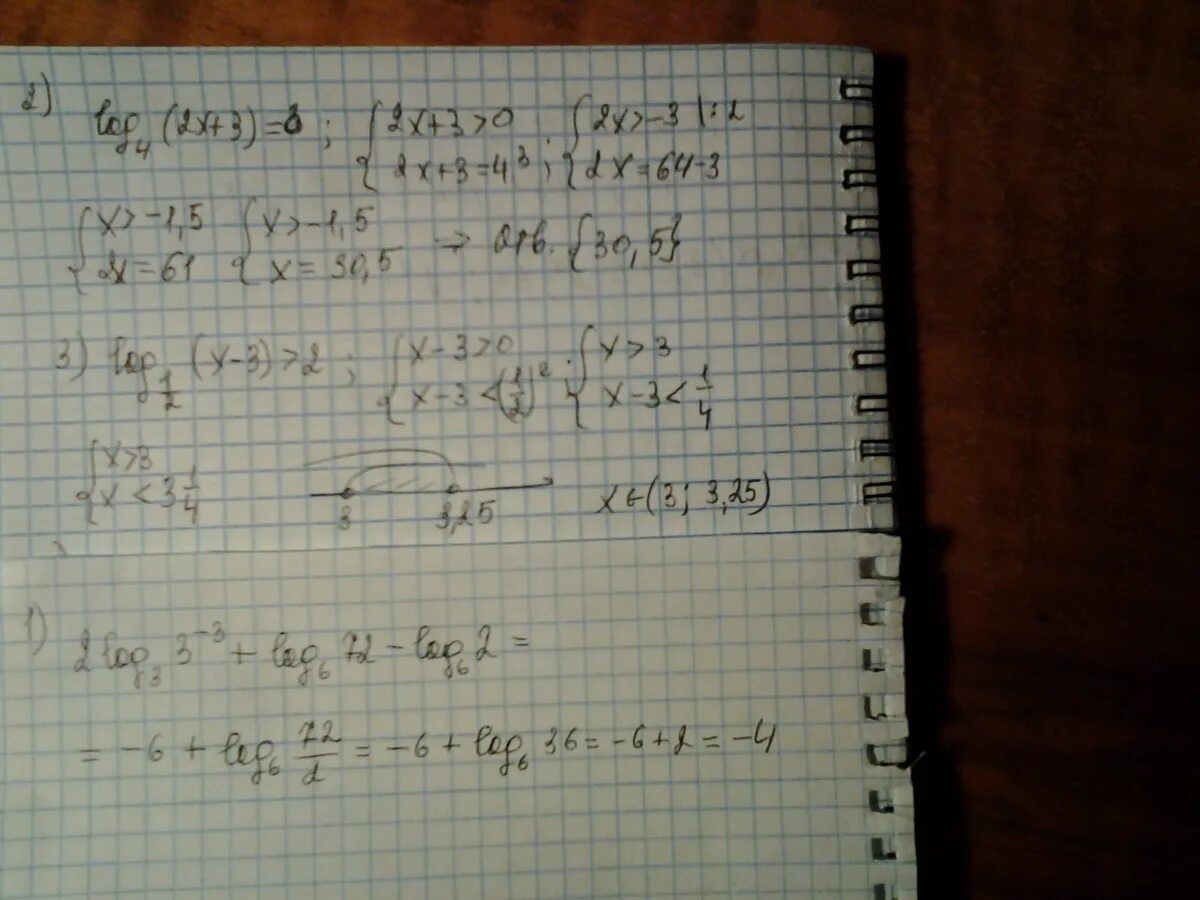 2) log₄ (2x+3) = 3 ; { 2x+3>0 ; { 2x>-3 |:2
{ 2x+3=4³ ; { 2x=64-3
{ x>-1,5 { x>-1,5 ⇒ Отв. {30,5}
{ 2x=61 { x=30,5
3) log_{1/2} (x-3)>2 ; { x-3>0 ; { x>3
{ x-3<(1/2)² { x-3<1/4
{ x>3
{ x<3 1/4
3 3,25 x∈(3; 3,25)
1)
2log₃ 3⁻³ + log₆ 72 - log₆ 2 =
= -6 + log₆ 72/2 = -6 + log₆ 36 = -6+2 = -4